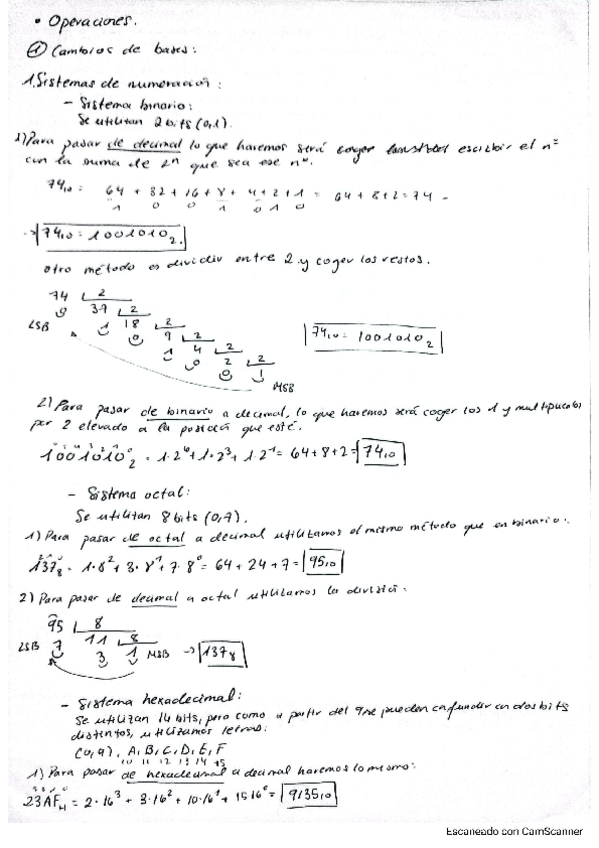 • Operaciones.
① Cambios de bases:
1. Sistemas de numeración:
- Sistema binario:
Se utilitan 2 bits (0,1).
1) Para pasar de decimal lo que haremos será coger escribir el nº
con la suma de 2ⁿ que sea ese nº.
74₁₀ = 64 + 32 + 16 + 8 + 4 + 2 + 1 = 64 + 8 + 2 = 74
1 0 0 1 0 1 0
→ 74₁₀ = 1001010₂
otro método es dividir entre 2 y coger los restos.
74 2
0 37 2
LSB 1 18 2
0 9 2
1 4 2
0 2 2
0 1
MSB
74₁₀ = 1001010₂
2) Para pasar de binario a decimal, lo que haremos será coger los 1 y multiplicarlos
por 2 elevado a la posición que esté.
1001010₂ = 1·2⁶ + 1·2³ + 1·2¹ = 64 + 8 + 2 = 74₁₀
- Sistema octal:
Se utilitan 8 bits (0,7).
1) Para pasar de octal a decimal utilitamos el mismo método que en binario:
137₈ = 1·8² + 3·8¹ + 7·8⁰ = 64 + 24 + 7 = 95₁₀
2) Para pasar de decimal a octal utilitamos la división:
95 8
LSB 7 11 8
3 1 MSB → 137₈
- Sistema hexadecimal:
Se utilitan 14 bits, pero como a partir del 9 se pueden confundir con dos bits
distintos, utilitamos letras:
(0,9), A, B, C, D, E, F
10 11 12 13 14 15
1) Para pasar de hexadecimal a decimal haremos lo mismo:
3 2 1 0
23AFH = 2·16³ + 3·16² + 10·16¹ + 15·16⁰ = 9135₁₀
Escaneado con CamScanner